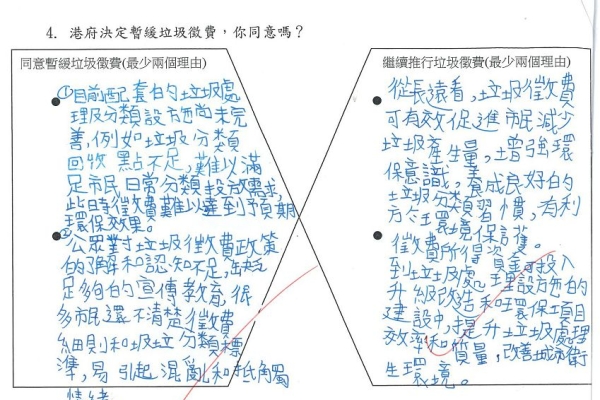 4. 港府決定暫緩垃圾徵費，你同意嗎？
同意暫緩垃圾徵費(最少兩個理由)
①目前配套的垃圾處
理及分類設施尚未完
善，例如垃圾分類
回收點不足，難以滿
足市民日常分類投放需求，
此時徵收費難以達到預期
環保效果。
②公眾對垃圾徵費政策
的了解和認知不足，出
足夠的宣傳教育，很
多市民還不清楚徵費
細則和垃圾分類標
準，易引起混亂和抵觸
情緒
繼續推行垃圾徵費(最少兩個理由)
從長遠看，垃圾徵費
可有效促進市民減少
垃圾產生量，增強環
保意識，養成良好的
垃圾分類習慣，有利
於環境保護。
徵費所得資金可投入
到垃圾處理設施的
升級改造和環保項目
建設中，提升垃圾處理
效率和質量，改善城市衛
生環境。